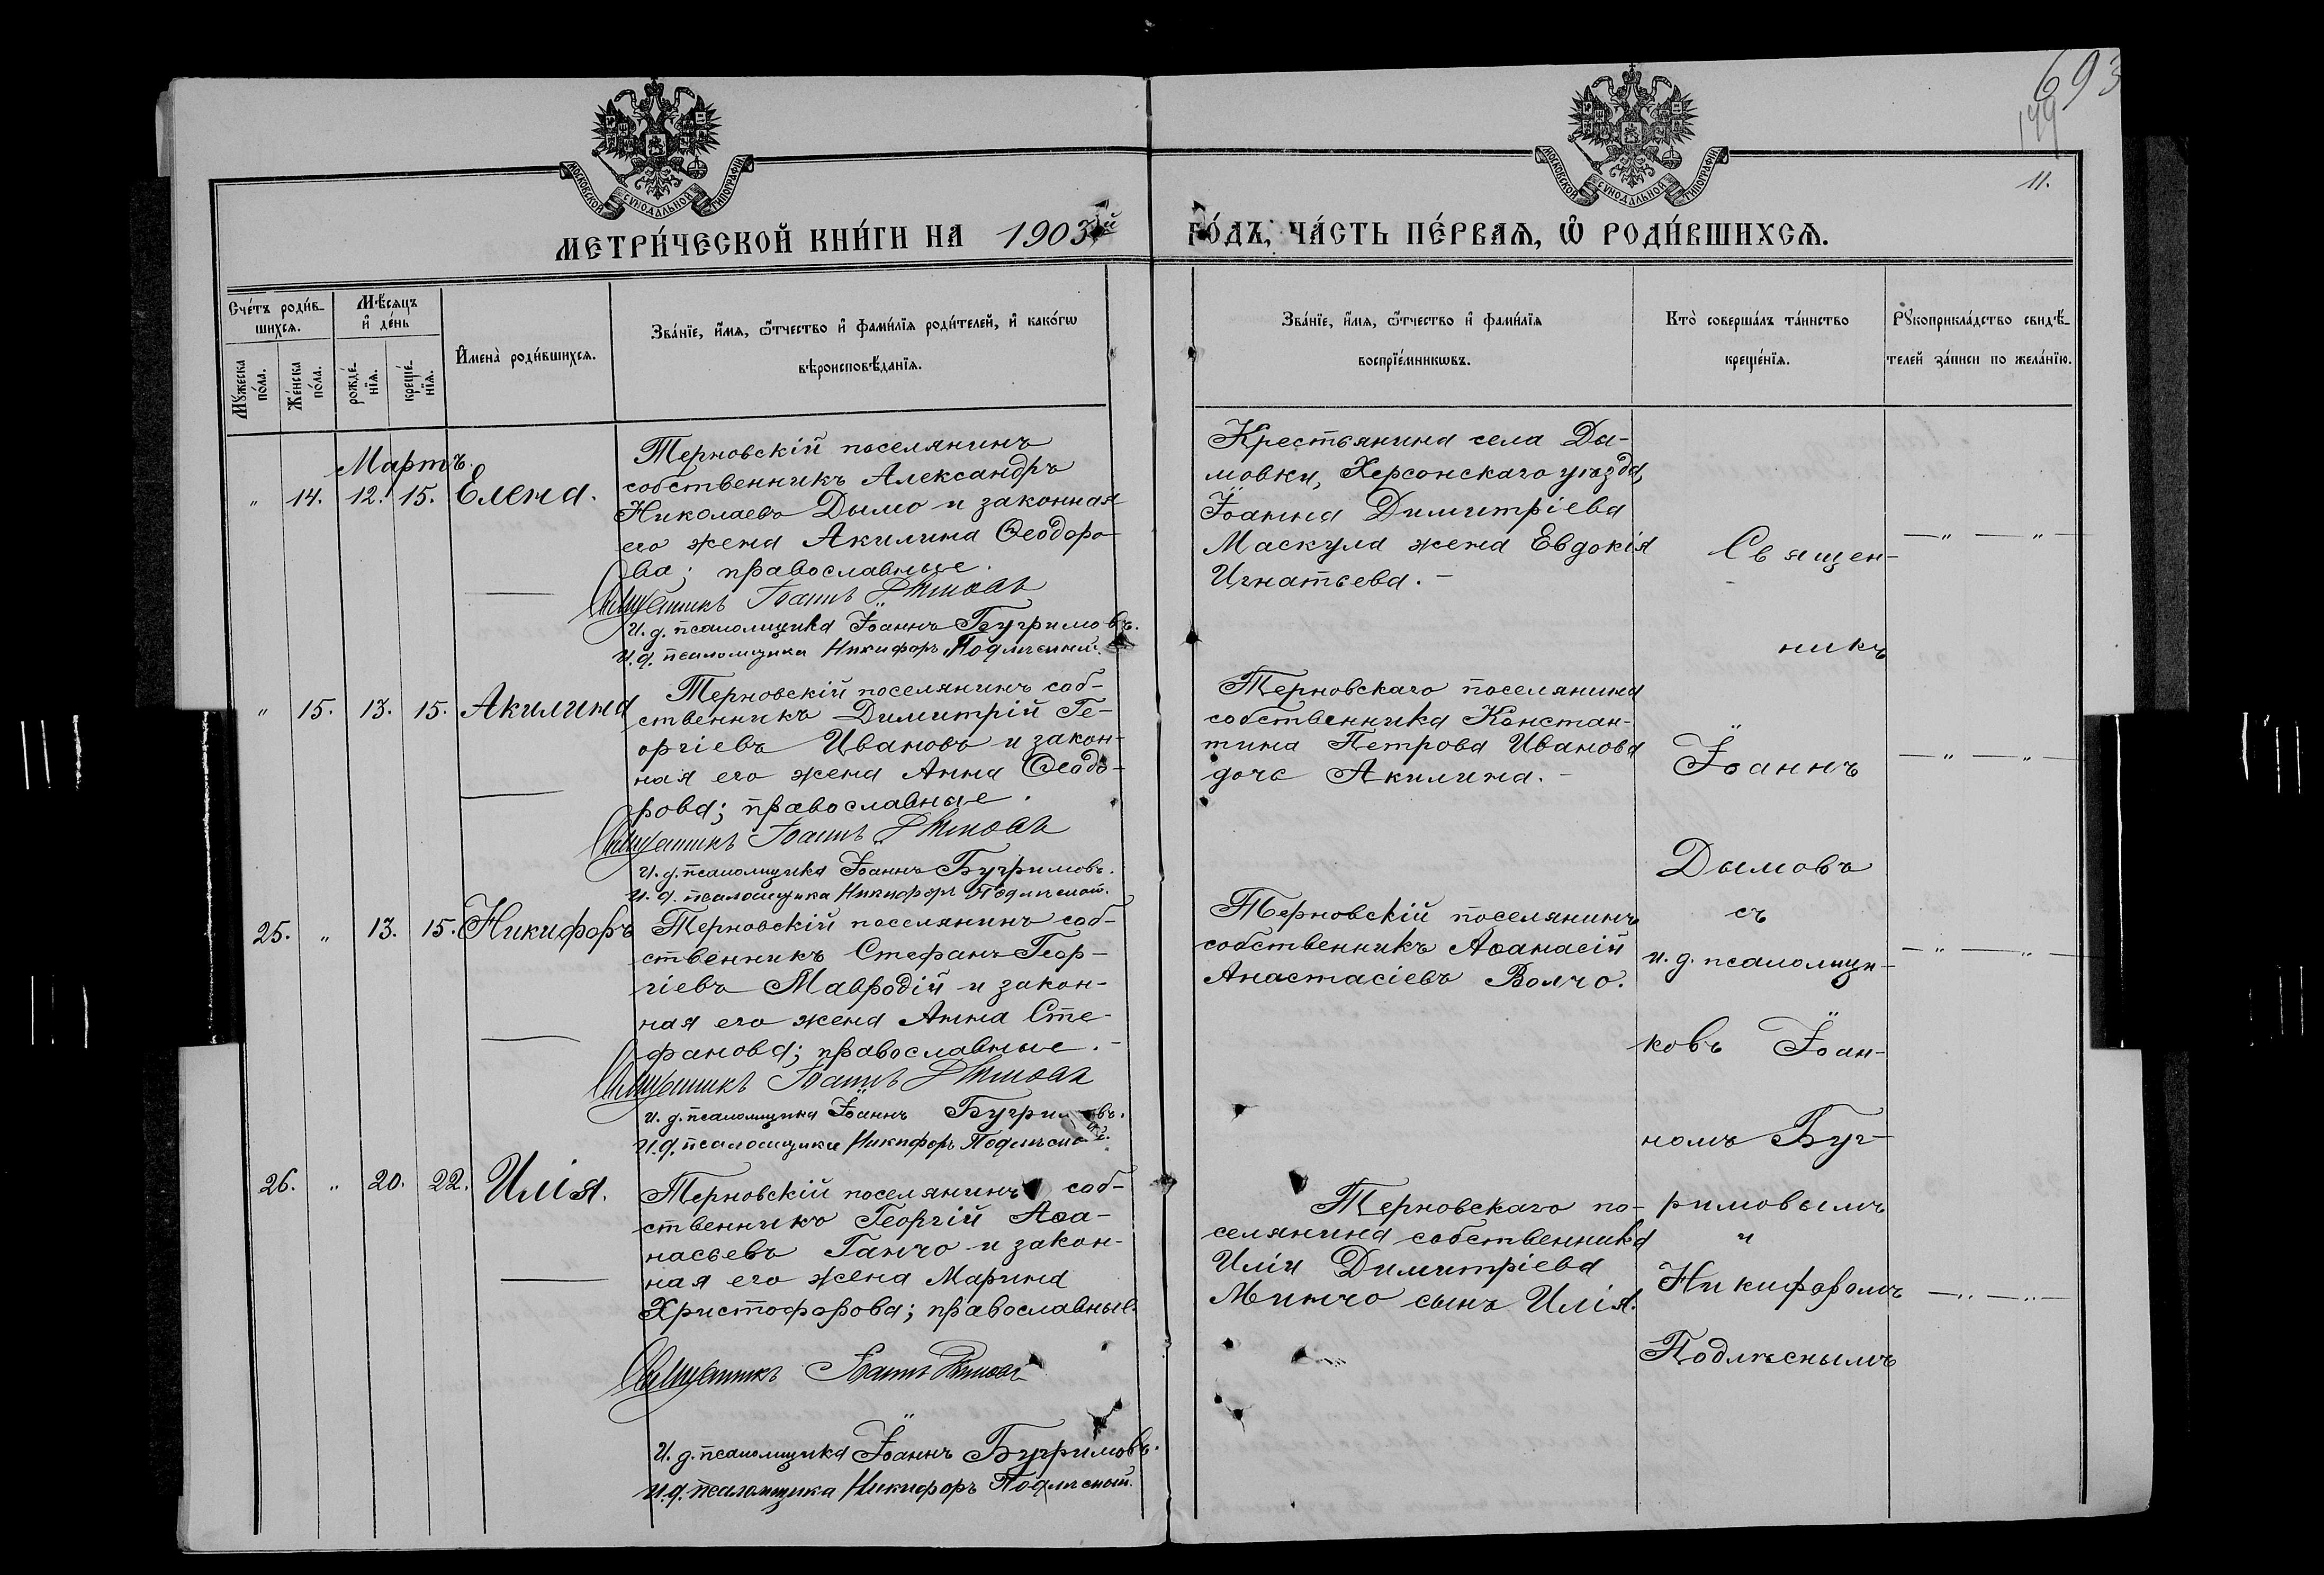 693
199
11.
МОСКОВСКОЙ СѴНОДАЛЬНОЙ ТИПОГРАФІИ
МОСКОВСКОЙ СѴНОДАЛЬНОЙ ТИПОГРАФІИ
МЕТРИ́ЧЕСКОЙ КНИ́ГИ НА 1903й
ГО́ДЪ, ЧА́СТЬ ПЕ́РВАѦ, Ѡ҆ РОДИ́ВШИХСѦ.
Сче́тъ роди́в-
шихсѧ.
Мꙋ́жеска по́ла.
Же́нска по́ла.
Мѣ́сѧцъ
и҆ де́нь
рожде́-
нїѧ.
креще́-
нїѧ.
И҆мена̀ роди́вшихсѧ.
Зва́нїе, и҆́мѧ, ѻ҆́тчество и҆ фами́лїѧ роди́телей, и҆ како́гѡ
вѣроисповѣ́данїѧ.
Зва́нїе, и҆́мѧ, ѻ҆́тчество и҆ фами́лїѧ
воспрїе́мникѡвъ.
Кто̀ соверша́лъ та́инство
креще́нїѧ.
Рꙋкоприкла́дство свидѣ́-
телей за́писи по жела́нїю.
Мартъ.
" 14. 12. 15. Елена.
Терновскій поселянинъ
собственникъ Александръ
Николаевъ Дымо и законная
его жена Акилина Ѳеодоро-
ва; православные.
Священникъ Іоаннъ Дымовъ
И. д. псаломщика Іоаннъ Бугримовъ.
И. д. псаломщика Никифоръ Подлѣсный.
Крестьянина села Ды-
мовки, Херсонскаго уѣзда,
Іоанна Димитріева
Маскула жена Евдокія
Игнатьева. -
" 15. 13. 15. Акилина
Терновскій поселянинъ соб-
ственникъ Димитрій Ге-
оргіевъ Ивановъ и закон-
ная его жена Анна Ѳеодо-
рова; православные.
Священникъ Іоаннъ Дымовъ
И. д. псаломщика Іоаннъ Бугримовъ.
И. д. псаломщика Никифоръ Подлѣсный.
Терновскаго поселянина
собственника Констан-
тина Петрова Иванова
дочь Акилина. -
25. " 13. 15. Никифоръ
Терновскій поселянинъ соб-
ственникъ Стефанъ Геор-
гіевъ Мавродій и закон-
ная его жена Анна Сте-
фанова; православные. -
Священникъ Іоаннъ Дымовъ
И. д. псаломщика Іоаннъ Бугримовъ.
И. д. псаломщика Никифоръ Подлѣсный.
Терновскій поселянинъ
собственникъ Аѳанасій
Анастасіевъ Волчо.
26. " 20. 22. Илія.
Терновскій поселянинъ соб-
ственникъ Георгій Аѳа-
насьевъ Ганчо и закон-
ная его жена Марина
Христофорова; православные.
Священникъ Іоаннъ Дымовъ
И. д. псаломщика Іоаннъ Бугримовъ.
И. д. псаломщика Никифоръ Подлѣсный.
Терновскаго по-
селянина собственника
Иліи Димитріева
Минчо сынъ Илія.
Священ-
никъ
Іоаннъ
Дымовъ
съ
и. д. псаломщи-
ковъ Іоан-
номъ Буг-
римовымъ
и
Никифоромъ
Подлѣснымъ
— " — " —
— " — " —
— " — " —
— " — " —